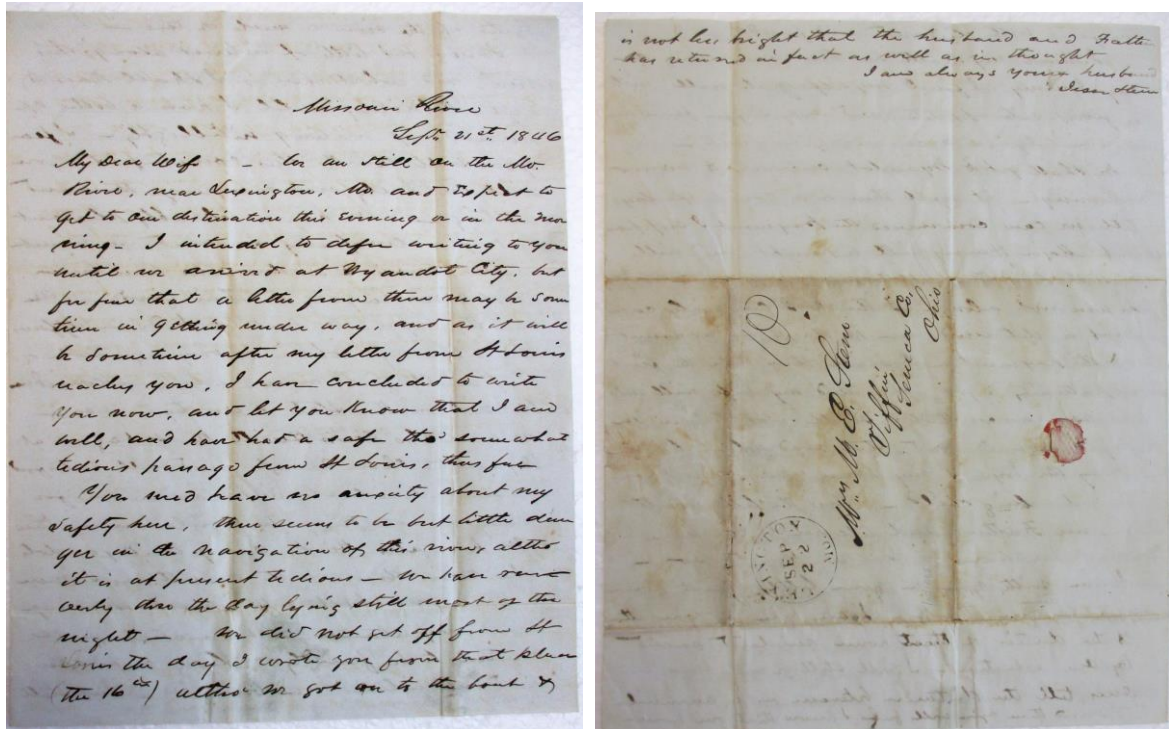 Missouri River
Sept. 21st. 1846
My Dear Wife - We are still on the Mo.
River, near Lexington, Mo. and expect to
get to our destination this evening or in the mor
ning - I intended to defer writing to you
until we arrived at Wyandot City, but
for fear that a letter from there may be some
time in getting under way, and as it will
be sometime after my letter from St Louis
reaches you, I have concluded to write
you now, and let you know that I am
well, and have had a safe tho' somewhat
tedious passage from St Louis, thus far
You need have no anxiety about my
safety here, there seems to be but little dan
ger in the navigation of this river, altho
it is at present tedious - we have run
only thro the day lying still most of the
night - We did not get off from St
Louis the day I wrote you from that place
(the 16th) altho we got on to the boat &
is not less bright that the husband and Father
has returned in fact as well as in thought
I am always your husband
Jesse Stem
10
Mrs. M. E. Stem
Tiffin
Seneca Co.
Ohio
LEXINGTON
MO.
SEP
22